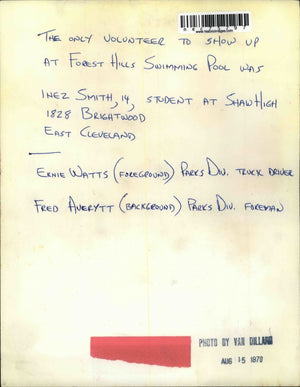 THE ONLY VOLUNTEER TO SHOW UP
AT FOREST HILLS SWIMMING POOL WAS
INEZ SMITH, 14, STUDENT AT SHAW HIGH
1828 BRIGHTWOOD
EAST CLEVELAND
ERNIE WATTS (FOREGROUND) PARKS DIV. TRUCK DRIVER
FRED AVERYTT (BACKGROUND) PARKS DIV. FOREMAN
PHOTO BY VAN DILLARD
AUG 15 1970